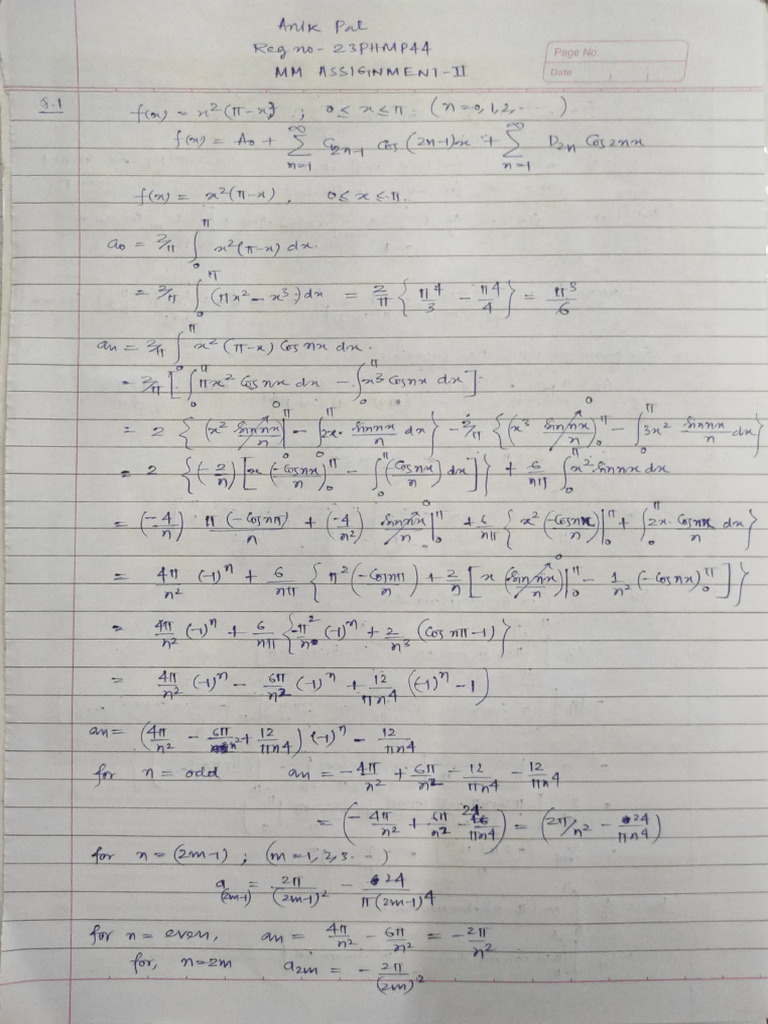 Anik Pal
Reg no- 23PHMP44
MM ASSIGNMENT-II
Page No.
Date
Q.1
f(x) = x²(π-x) ; 0≤ x ≤π. (n=0,1,2,....)
f(x) = A₀ + ∑_{n=1}^{∞} C_{2n-1} Cos (2n-1)x + ∑_{n=1}^{∞} D_{2n} Cos2nx
f(x) = x²(π-x), 0≤ x ≤ π.
a₀ = 2/π ∫_0^π x²(π-x) dx.
= 2/π ∫_0^π (πx² - x³) dx = 2/π { π⁴/3 - π⁴/4 } = π³/6
an = 2/π ∫_0^π x² (π-x) Cosnx dx.
= 2/π [ ∫_0^π πx² Cosnx dx - ∫_0^π x³ Cosnx dx ].
= 2 { (x² sinnx/n |_0^π - ∫_0^π 2x· sinnx/n dx } - 2/π { (x³ sinnx/n)_0^π - ∫_0^π 3x² sinnx/n dx }
= 2 { (-2/n) [ x (-Cosnx/n)_0^π - ∫_0^π (-Cosnx/n) dx ] } + 6/nπ ∫_0^π x² sinnx dx
= (-4/n) π (-Cosnπ)/n + (-4/n²) sinnx/n |_0^π + 6/nπ { x² (-Cosnx/n) |_0^π + ∫_0^π 2x· Cosnx/n dx }
= 4π/n² (-1)ⁿ + 6/nπ { π² (-Cosnπ/n) + 2/n [ x (sinnx/n) |_0^π - 1/n² (-Cosnx)_0^π ] }
= 4π/n² (-1)ⁿ + 6/nπ { -π²/n (-1)ⁿ + 2/n³ (Cosnπ-1) }
= 4π/n² (-1)ⁿ - 6π/n² (-1)ⁿ + 12/πn⁴ ((-1)ⁿ - 1)
an = (4π/n² - 6π/n² + 12/πn⁴) (-1)ⁿ - 12/πn⁴
for n = odd an = -4π/n² + 6π/n² - 12/πn⁴ - 12/πn⁴
= (-4π/n² + 6π/n² - 24/πn⁴) = (2π/n² - 24/πn⁴)
for n = (2m-1) ; (m=1,2,3.--)
a_(2m-1) = 2π/(2m-1)² - 24/π(2m-1)⁴
for n = even, an = 4π/n² - 6π/n² = -2π/n²
for, n=2m a₂m = - 2π/(2m)²